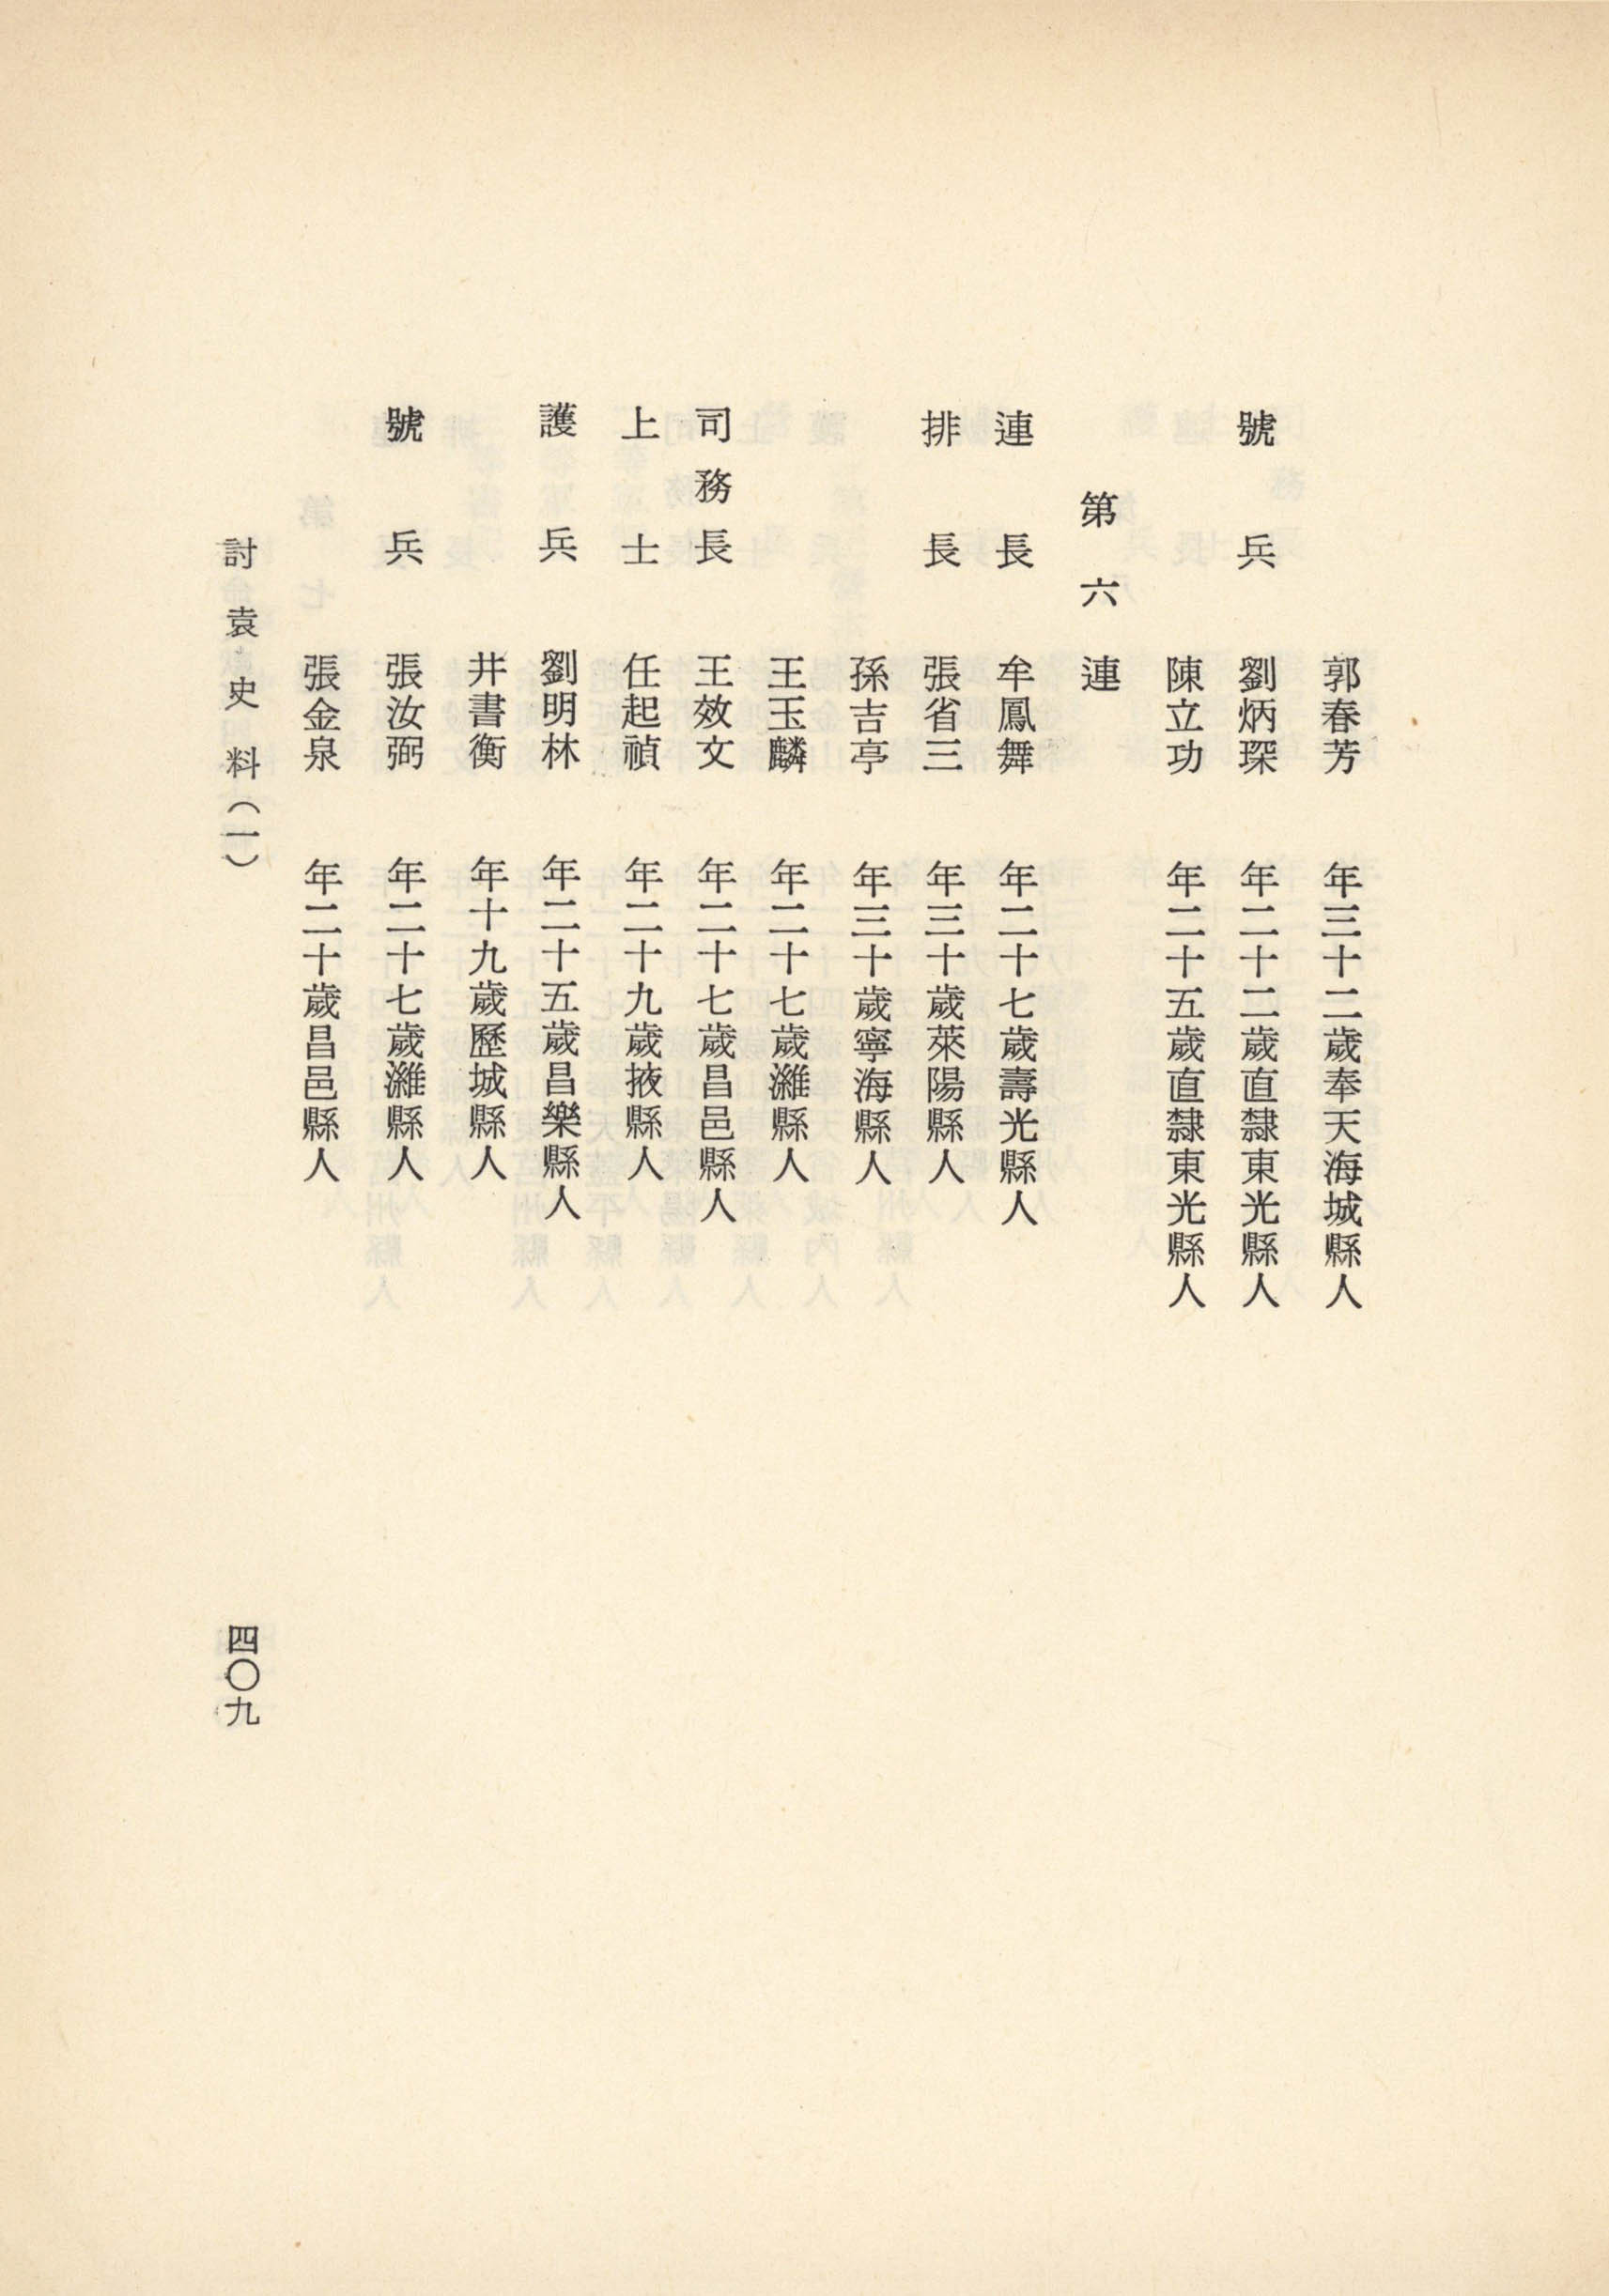 郭春芳　年三十二歲奉天海城縣人
號兵　劉炳琛　年二十二歲直隸東光縣人
陳立功　年二十五歲直隸東光縣人
第六連
連長　牟鳳舞　年二十七歲壽光縣人
排長　張省三　年三十歲萊陽縣人
孫吉亭　年三十歲寧海縣人
王玉麟　年二十七歲濰縣人
司務長　王效文　年二十七歲昌邑縣人
上士　任起禎　年二十九歲掖縣人
護兵　劉明林　年二十五歲昌樂縣人
井書衡　年十九歲歷城縣人
號兵　張汝弼　年二十七歲濰縣人
張金泉　年二十歲昌邑縣人
討袁史料（一）
四〇九